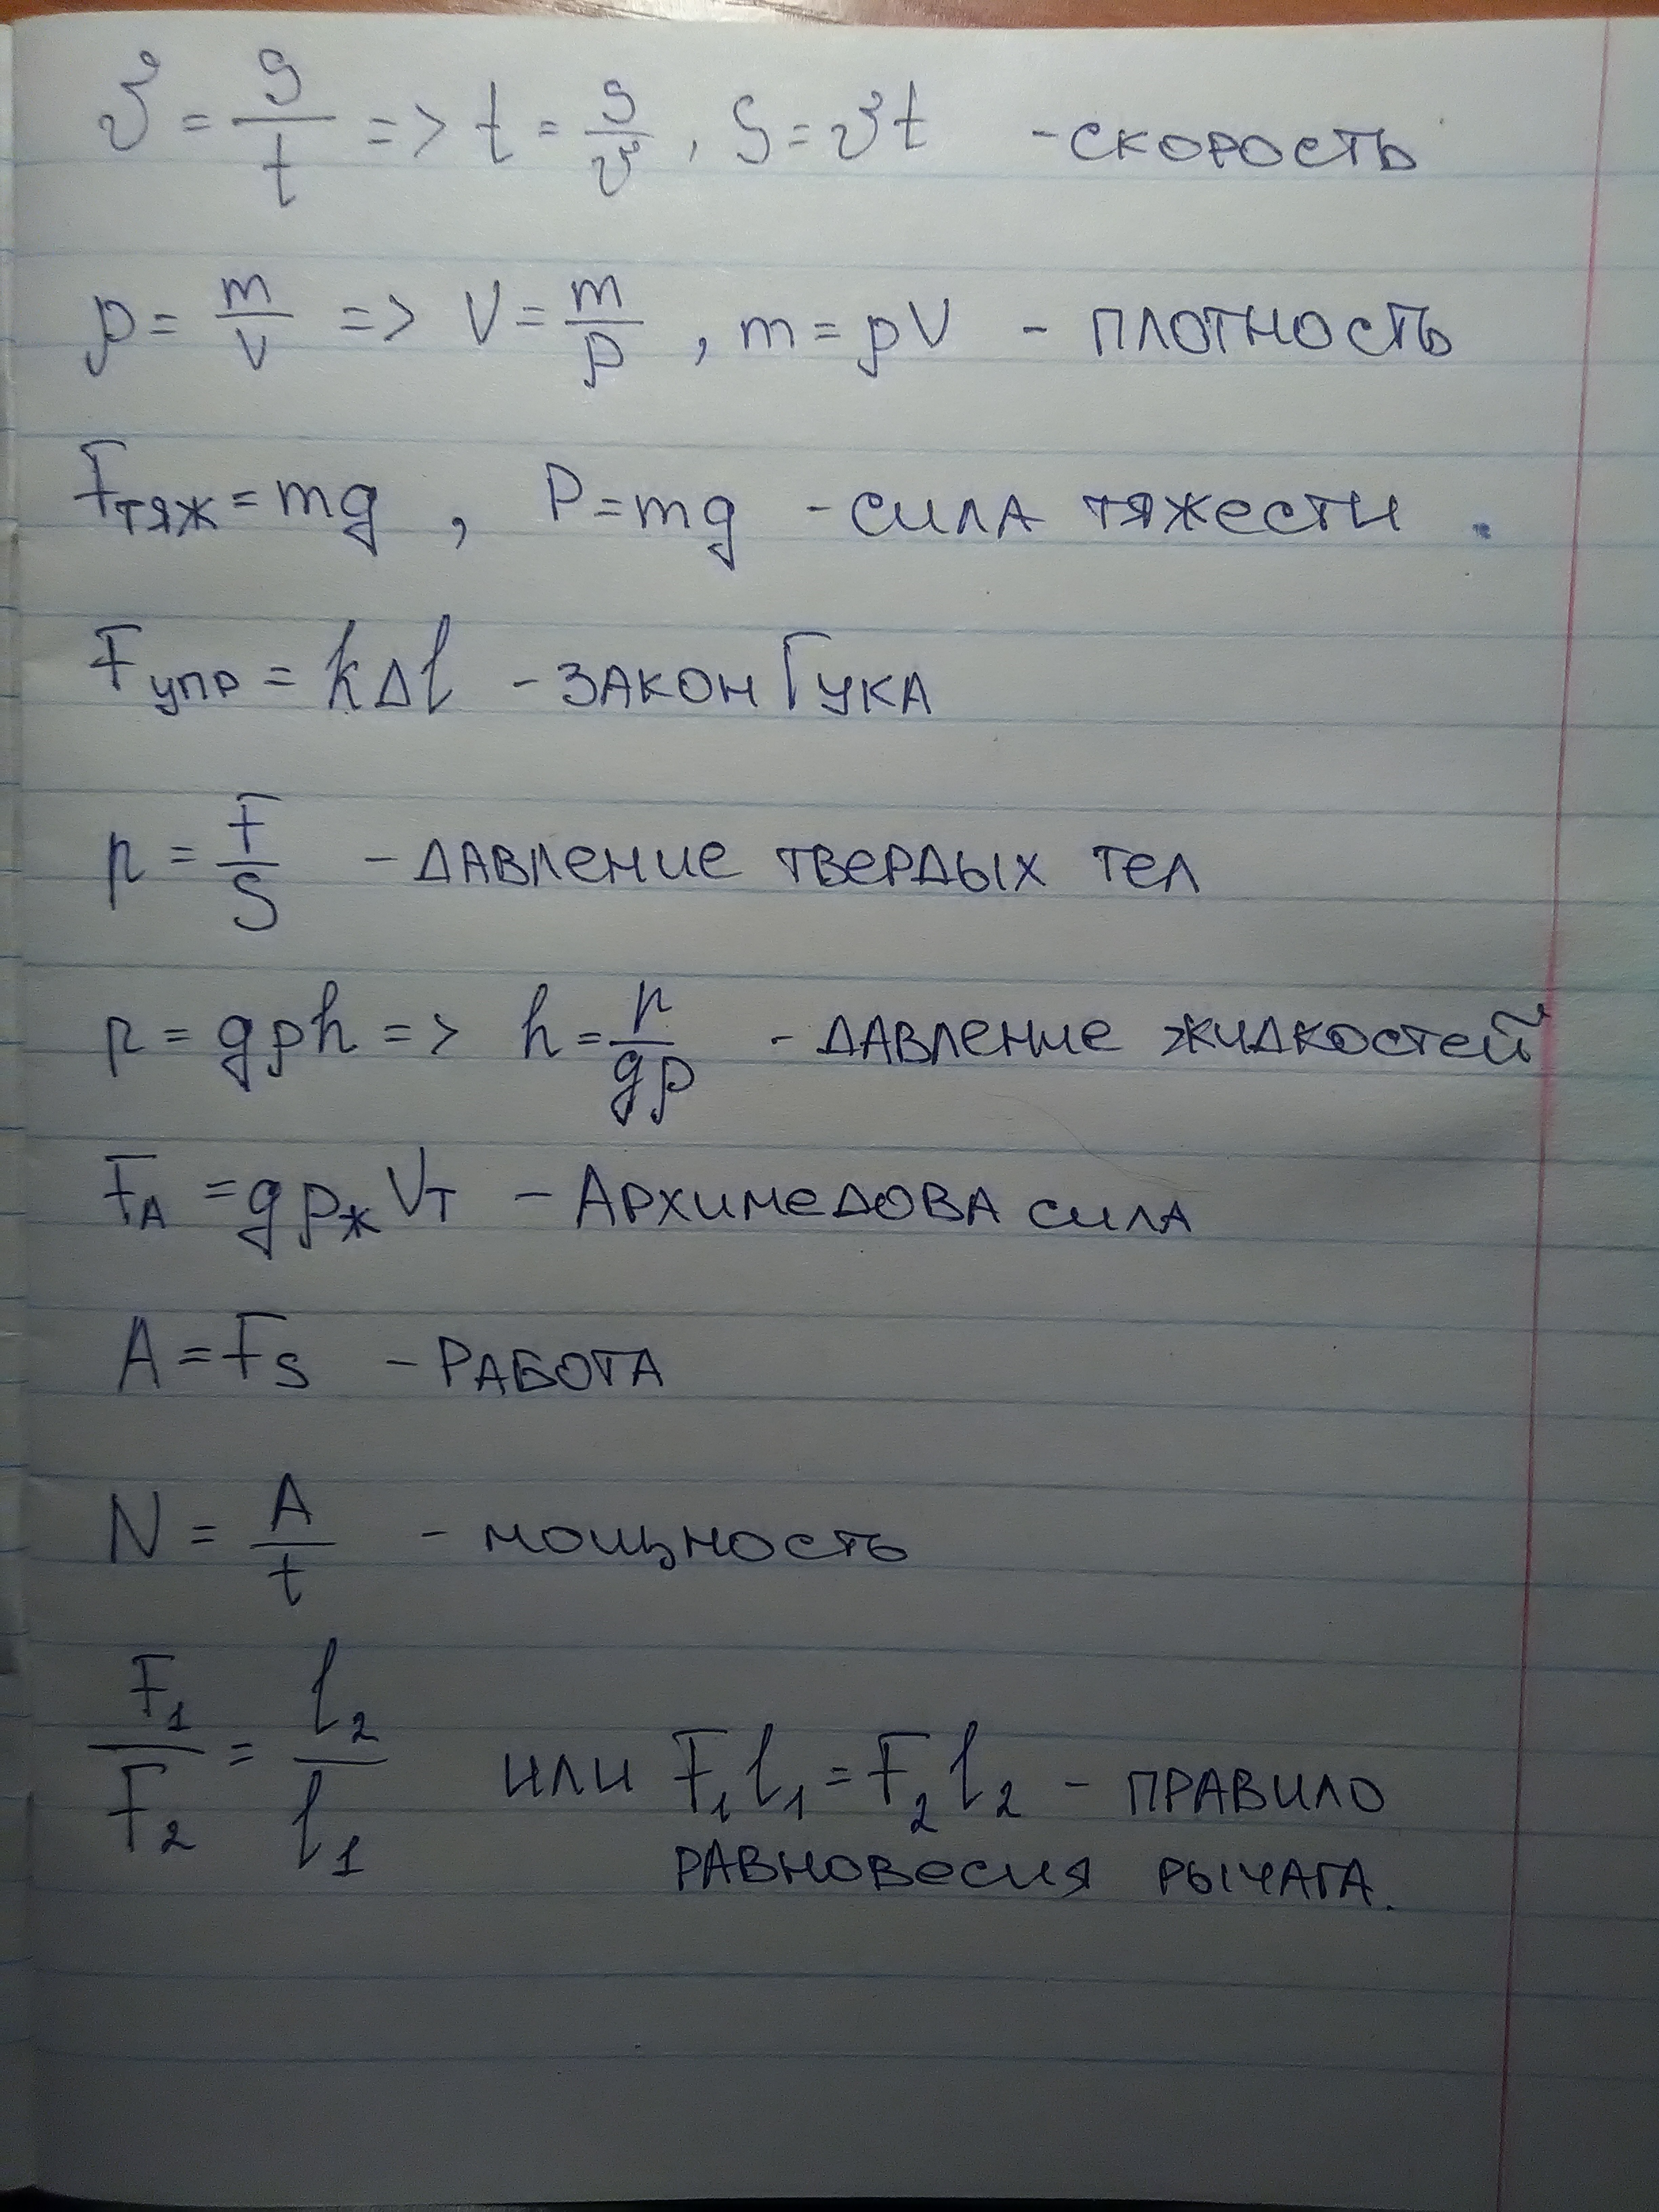 v = s/t => t = s/v, S = vt - скорость
ρ = m/V => V = m/ρ, m = ρV - плотность
Fтяж = mg, P = mg - сила тяжести.
Fупр = kΔl - закон Гука
p = F/S - давление твердых тел
p = gρh => h = p/gρ - давление жидкостей
FА = gρжVт - Архимедова сила
A = Fs - Работа
N = A/t - мощность
F₁/F₂ = l₂/l₁ или F₁l₁ = F₂l₂ - правило
равновесия рычага.